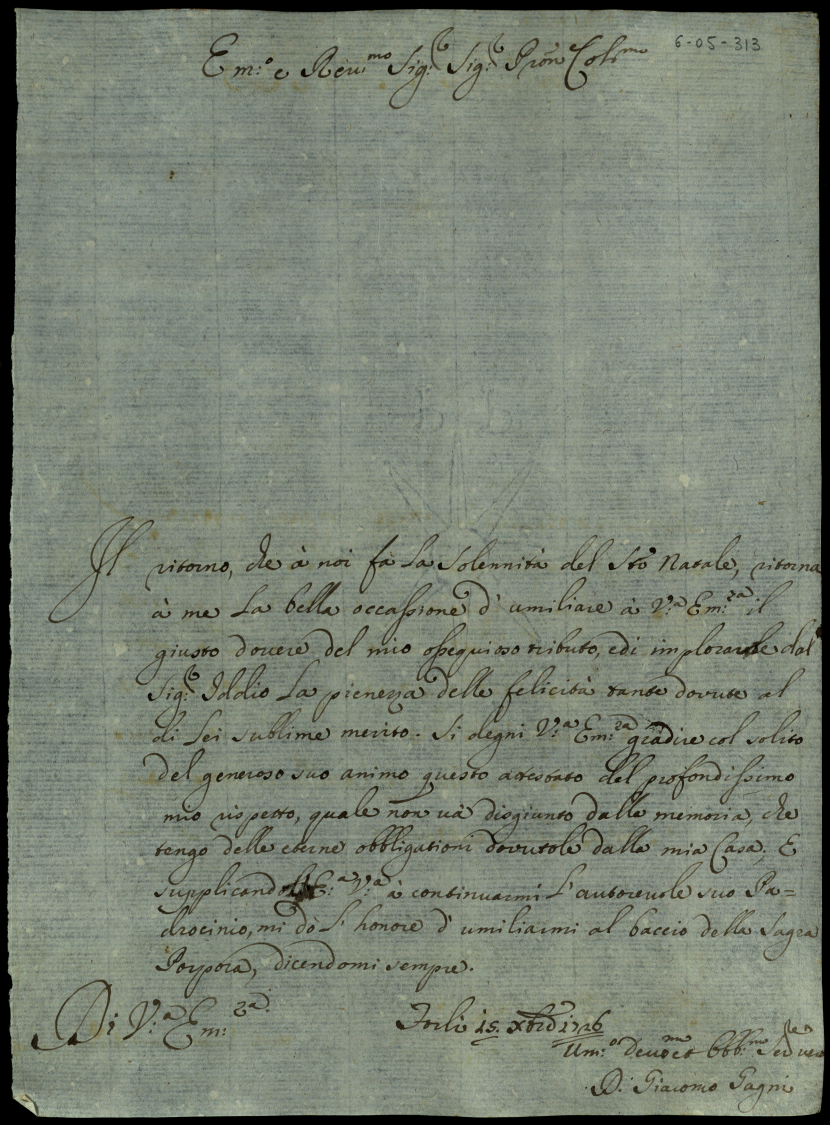 6-05-313
Em:o e Reu:mo Sig:r Sig:r Pron Col:mo
Il ritorno, che à noi fà la Solennità del Sto Natale, ritorna
à me la bella occassione d'umiliare à V:a Em:za il
giusto douere del mio ossequioso tributo, e di implorarle dal
Sig:r Iddio la pienezza delle felicità tante dovute al
di Lei sublime merito. Si degni V:a Em:za gradire col solito
del generoso suo animo questo attestato del profondissimo
mio rispetto, quale non uà disgiunto dalla memoria, che
tengo delle eterne obbligationi dovutole dalla mia Casa; E
supplicando E:a V:a à continuarmi l'autoreuole suo Pa=
drocinio, mi dò l'honore d'umiliarmi al baccio della Sagra
Porpora, dicendomi sempre.
Di V:a Em:za
Forlì 15. Xbre 1726
Um:o deuo et Obb:mo Serure
D. Giacomo Gagni